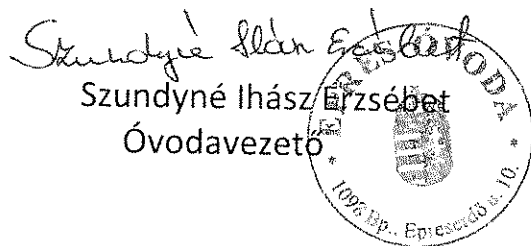 Szundyné Ihász Erzsébet
Szundyné Ihász Erzsébet
Óvodavezető
EPRES ÓVODA
* 1098 Bp., Epreserdő u. 10. *